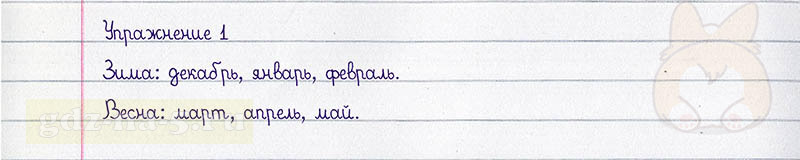 Упражнение 1
Зима: декабрь, январь, февраль.
Весна: март, апрель, май.